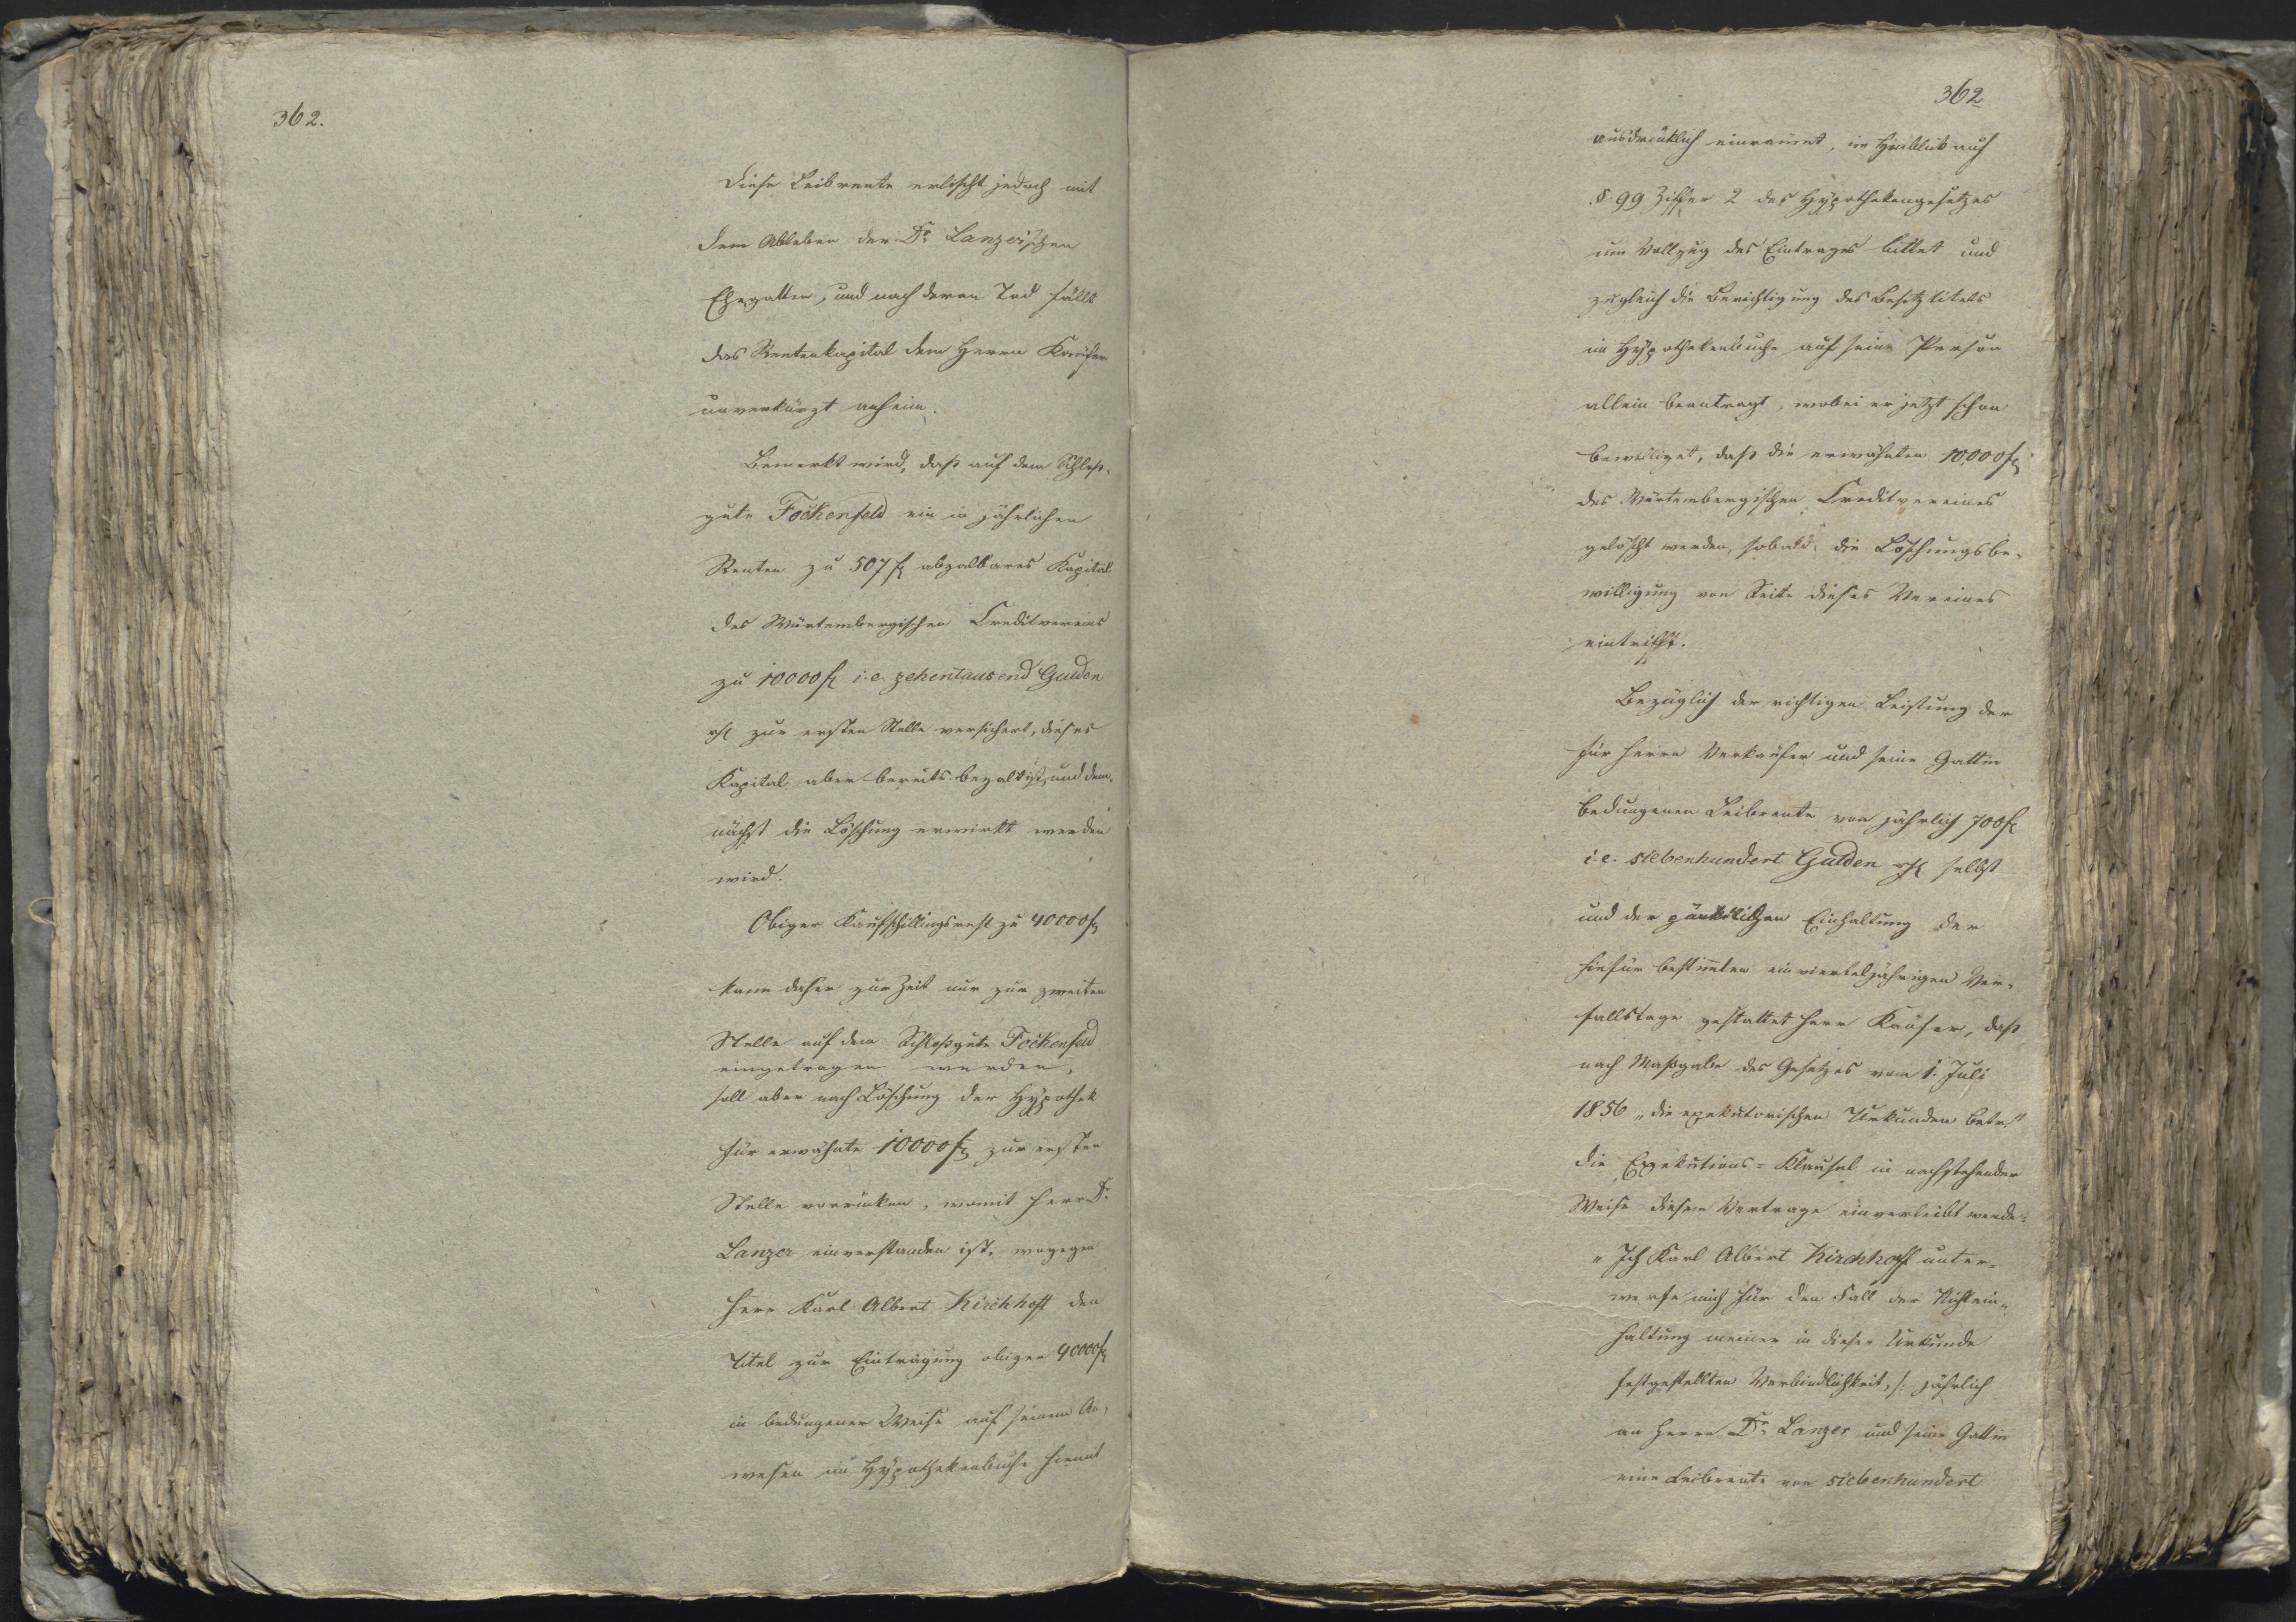 362.
Diese Leibrente erlischt jedoch mit
dem Ableben der Dr. Lanzer'schen
Ehegatten, und nach deren Tod fällt
das Rentenkapital dem Herrn Käufer
unverkürzt anheim.
Bemerkt wird, daß auf dem Schloß-
gute Fockenfeld ein in jährlichen
Renten zu 507 fl abzalbares Kapital
des Würtembergischen Creditvereins
zu 10000 fl i. e. zehentausend Gulden
rh zur ersten Stelle versichert, dieses
Kapital aber bereits bezalt ist, und dem-
nächst die Löschung erwirkt werden
wird.
Obiger Kaufschillingsrest zu 40000 fl
kann daher zur Zeit nur zur zweiten
Stelle auf dem Schloßgute Fockenfeld
eingetragen werden,
soll aber nach Löschung der Hypothek
für erwähnte 10000 fl zur ersten
Stelle vorrücken, womit Herr Dr.
Lanzer einverstanden ist, wogegen
Herr Karl Albert Kirchhoff den
Titel zur Eintragung obiger 40000 fl
in bedungener Weise auf seinem An-
wesen im Hypothekenbuche hiemit
362
ausdrücklich einräumt, im Hinblick auf
§ 99 Ziffer 2 des Hypothekengesetzes
um Vollzug des Eintrages bittet und
zugleich die Berichtigung des Besitztitels
im Hypothekenbuche auf seine Person
allein beantragt, wobei er jetzt schon
bewilliget, daß die erwähnten 10000 fl
des Würtembergischen Creditvereines
gelöscht werden, sobald die Löschungsbe-
willigung von Seite dieses Vereines
eintrifft.
Bezüglich der richtigen Leistung der
für Herrn Verkäufer und seine Gattin
bedungenen Leibrente von jährlich 700 fl
i. e. siebenhundert Gulden rh selbst
und der pünktlichen Einhaltung der
hiefür bestimmten einvierteljährigen Ver-
fallstage gestattet Herr Käufer, daß
nach Maßgabe des Gesetzes vom 1. Juli
1856 „die exekutorischen Urkunden betr."
die Exekutions-Klausel in nachstehender
Weise diesem Vertrage einverleibt werde:
„Ich Karl Albert Kirchhoff unter-
werfe mich für den Fall der Nichtein-
haltung meiner in dieser Urkunde
festgestellten Verbindlichkeit, /: jährlich
an Herrn Dr. Lanzer und seine Gattin
eine Leibrente von siebenhundert